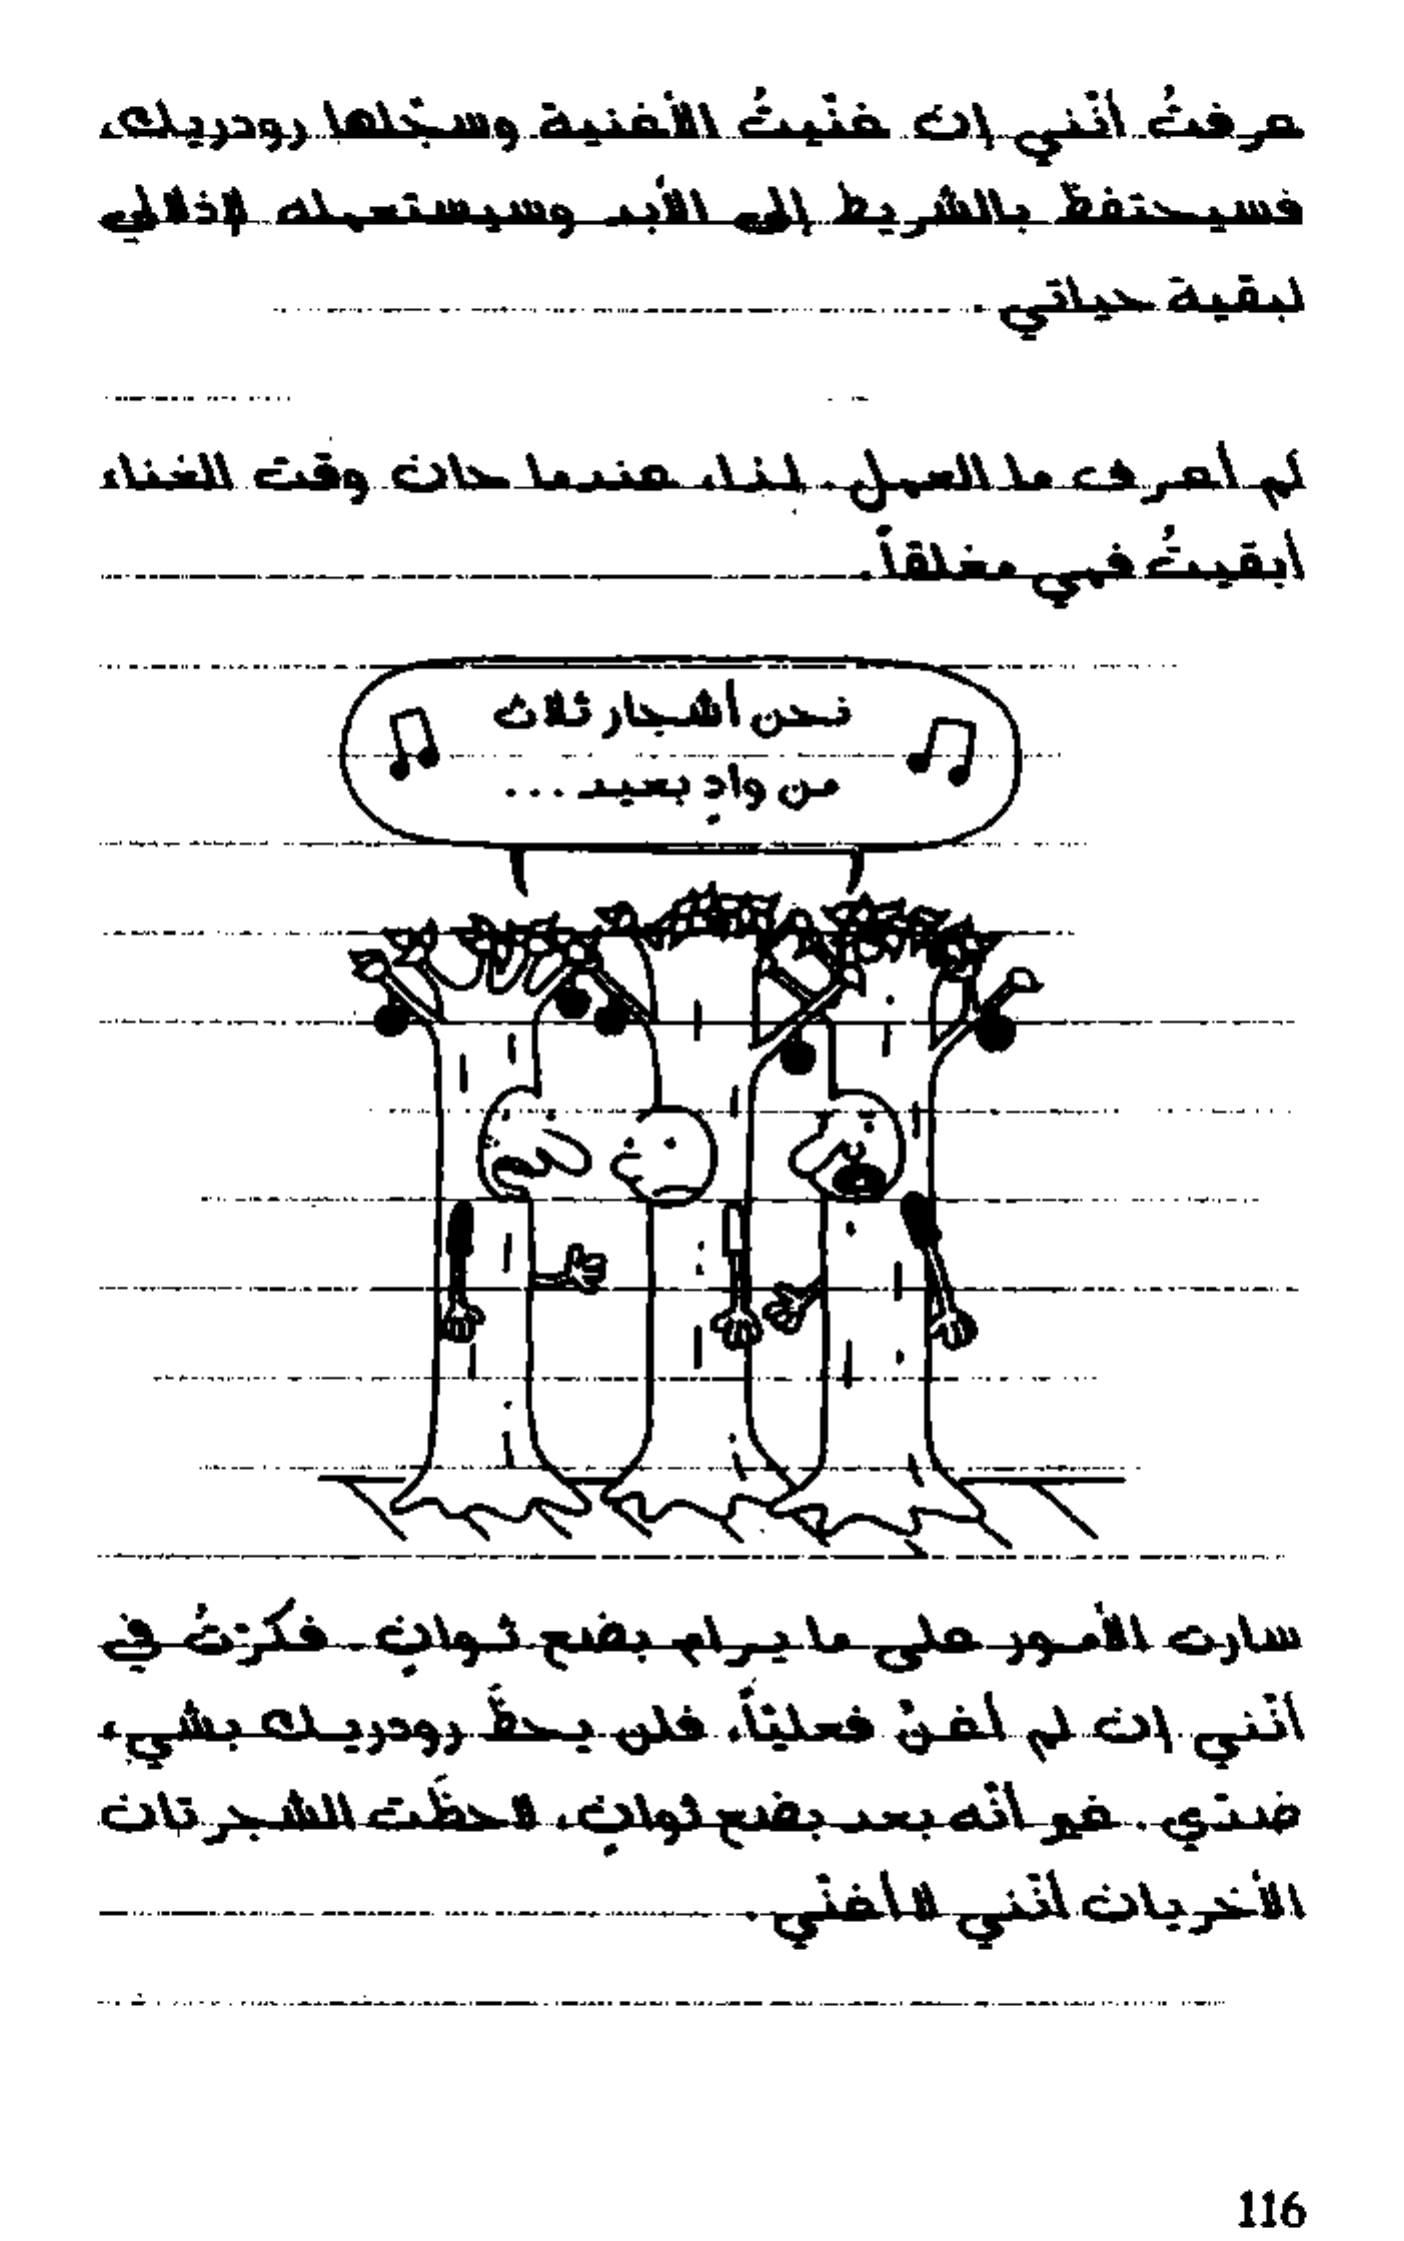 عرفتُ أنّني إن غنّيتُ الأغنية وسجّلها رودريك،
فسيحتفظ بالشريط إلى الأبد وسيستعمله لإذلالي
لبقية حياتي.
لم أعرف ما العمل. لذا، عندما حان وقت الغناء
أبقيتُ فمي مغلقاً.
نحن أشجار ثلاث
من وادٍ بعيد...
سارت الأمور على ما يرام بضع ثوانٍ. فكّرتُ في
أنّني إن لم أغنّ فعليّاً، فلن يحظَ رودريك بشيء
ضدّي. غير أنّه بعد بضع ثوانٍ، لاحظَت الشجرتان
الأخريان أنّني لا أغنّي.
116